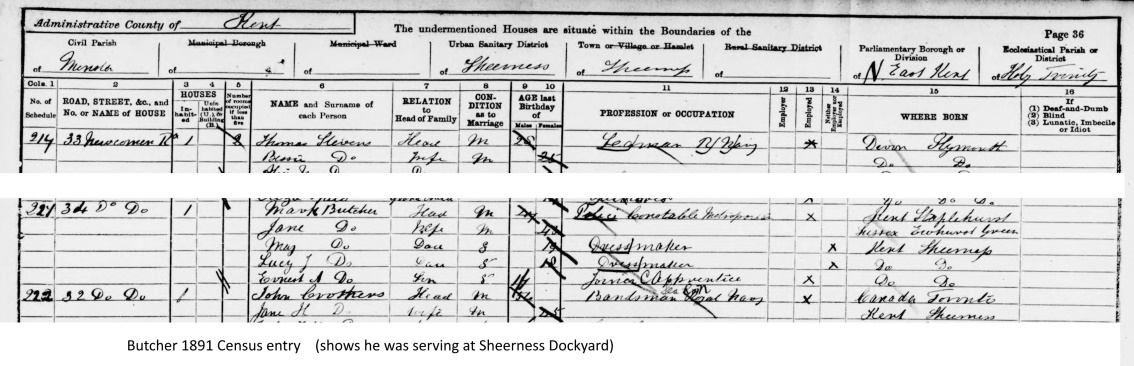 Administrative County of Kent
The undermentioned Houses are situate within the Boundaries of the
Page 36
Civil Parish of Minster
Municipal Borough of
Municipal Ward of
Urban Sanitary District of Sheerness
Town or Village or Hamlet of Sheerness
Rural Sanitary District of
Parliamentary Borough or Division of N East Kent
Ecclesiastical Parish or District of Holy Trinity
Cols. 1 2 3 4 5 6 7 8 9 10 11 12 13 14 15 16
No. of Schedule
ROAD, STREET, &c., and No. or NAME of HOUSE
HOUSES
Inhabited
Uninhabited (U.), or Building (B.)
Number of rooms occupied if less than five
NAME and Surname of each Person
RELATION to Head of Family
CONDITION as to Marriage
AGE last Birthday of
Males Females
PROFESSION or OCCUPATION
Employer
Employed
Neither Employer nor Employed
WHERE BORN
If (1) Deaf-and-Dumb (2) Blind (3) Lunatic, Imbecile or Idiot
33 Newcomen Rd 1 2 Thomas Stevens Head M 28 R/ Navy X Devon Plymouth
Bessie Do Wife M 25 Do Do
221 34 Do Do 1 Mark Butcher Head M Police Constable X Kent Staplehurst
Jane Do Wife M Sussex Ewhurst Green
May Do Dau S 19 Dressmaker X Kent Sheerness
Lucy J Do Dau S 18 Dressmaker X Do Do
Ernest A Do Son S Joiner C Apprentice X Do Do
222 32 Do Do 1 John Crothers Head M Bandsman Royal Navy X Canada Toronto
Jane H Do Wife M Kent Sheerness
Butcher 1891 Census entry (shows he was serving at Sheerness Dockyard)